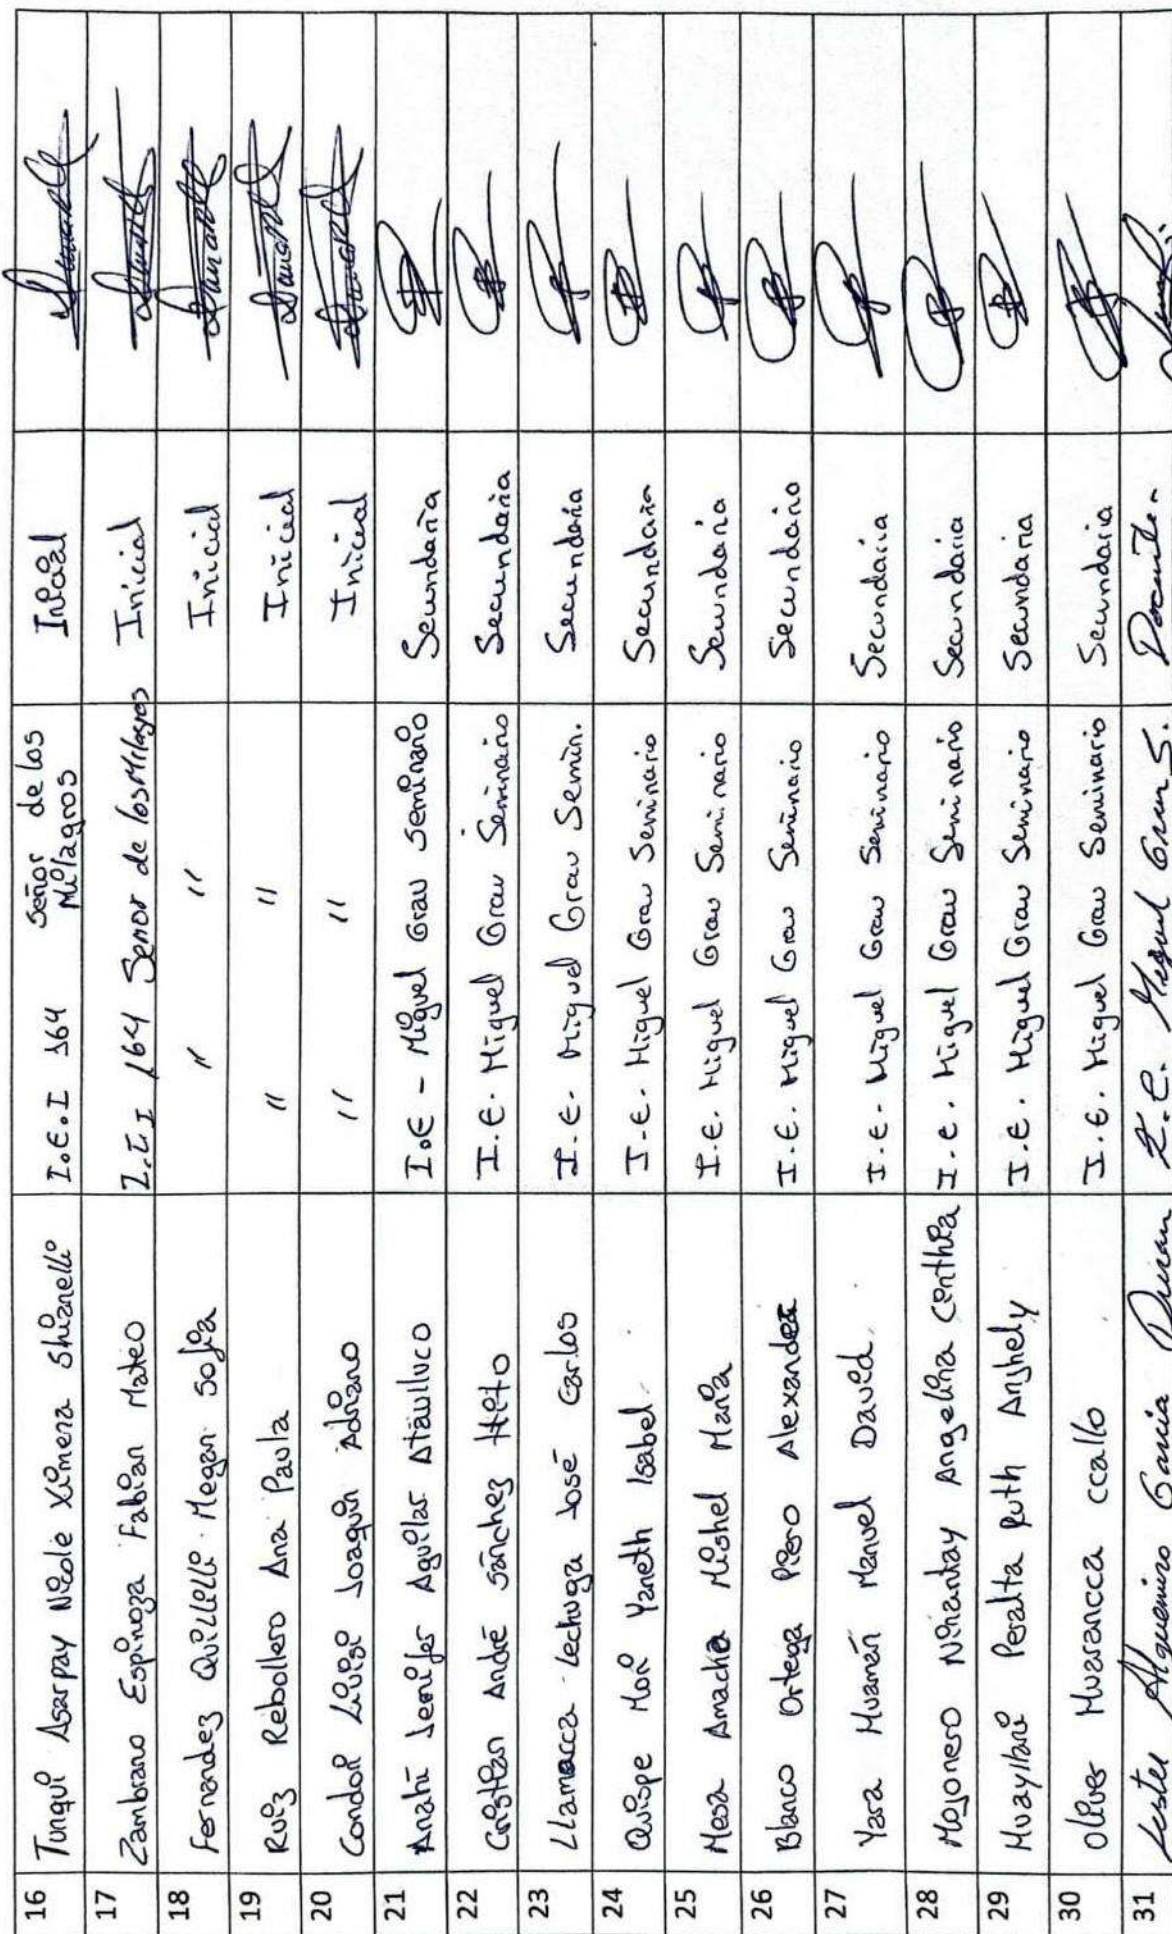 16 Tunqui Asarpay Nicole Ximena Shianelli I.E.I 164 Señor de los Milagros Inicial
17 Zambrano Espinoza Fabian Mateo I.E.I 164 Señor de los Milagros Inicial
18 Fernandez Quillilli Megan Sofia " " Inicial
19 Ruiz Rebollero Ana Paula " " Inicial
20 Condori Luisi Joaquin Adriano " " Inicial
21 Anahi Jenifer Aguilar Ataulluco I.E - Miguel Grau Seminario Secundaria
22 Cristian André Sánchez I.E. Miguel Grau Seminario Secundaria
23 Llamacca Lechuga José Carlos I.E. Miguel Grau Semin. Secundaria
24 Quispe Mori Yaneth Isabel I.E. Miguel Grau Seminario Secundaria
25 Mesa Amacha Mishel Maria I.E. Miguel Grau Seminario Secundaria
26 Blanco Ortega Piero Alexander I.E. Miguel Grau Seminario Secundario
27 Yara Huamán Manuel David. I.E. Miguel Grau Seminario Secundaria
28 Mojonero Ninantay Angelina Cinthia I.E. Miguel Grau Seminario Secundaria
29 Huayllani Peralta Ruth Anjhely I.E. Miguel Grau Seminario Secundaria
30 Oliver Huarancca Ccallo I.E. Miguel Grau Seminario Secundaria
31 Garcia I.E. Miguel Grau S. Docente